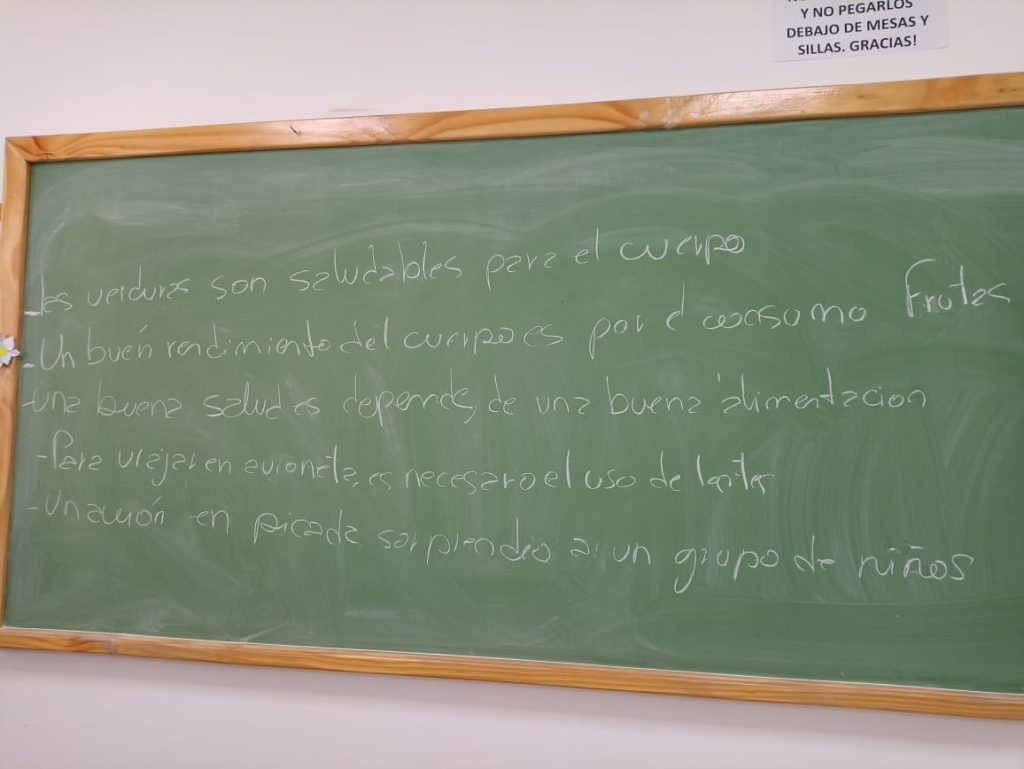 Y NO PEGARLOS
DEBAJO DE MESAS Y
SILLAS. GRACIAS!
-Las verduras son saludables para el cuerpo
-Un buén rendimiento del cuerpo es por el consumo Frutas
-una buena salud es depende, de una buena alimentacion
-Para viajar en avioneta, es necesaro el uso de lentes
-Un avión en picada, sorprendio a un grupo de niños